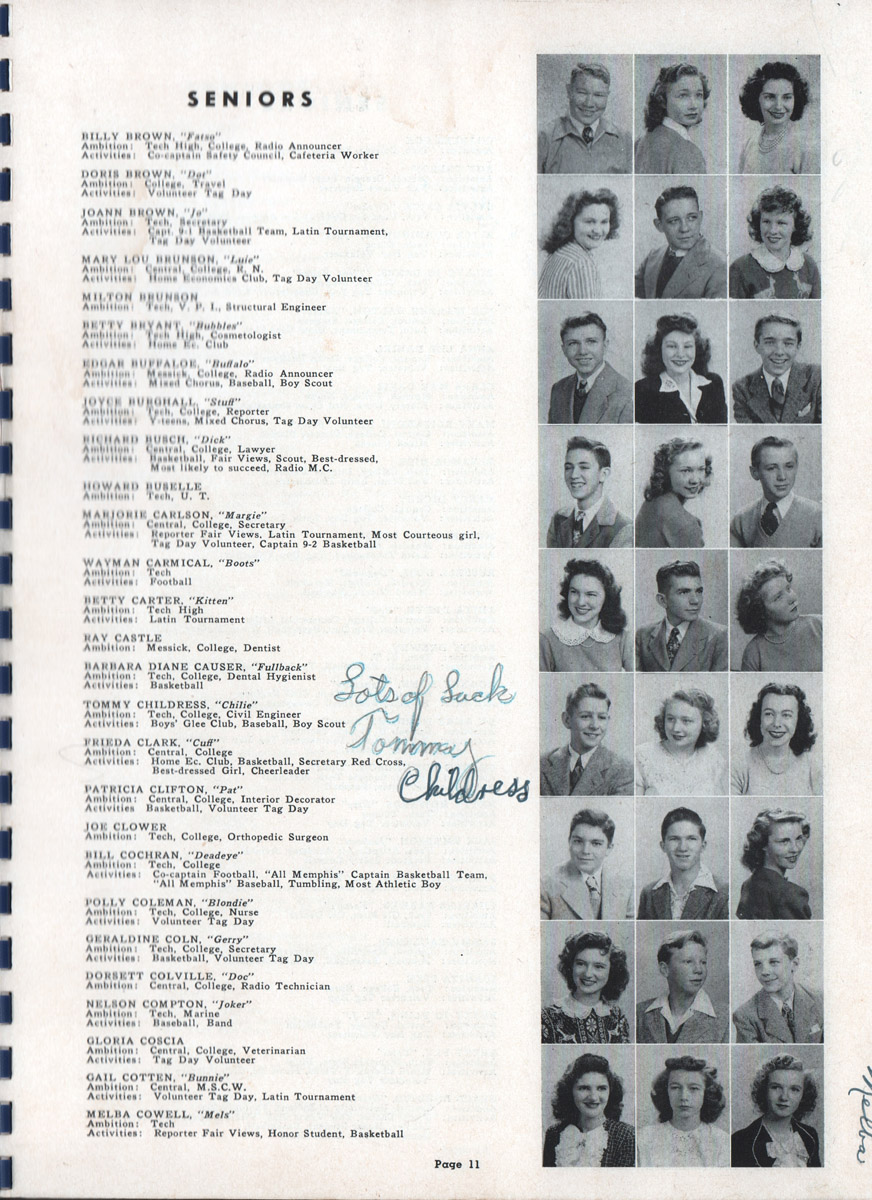 SENIORS
BILLY BROWN, "Fatso"
Ambition: Tech High, College, Radio Announcer
Activities: Co-captain Safety Council, Cafeteria Worker
DORIS BROWN, "Dot"
Ambition: College, Travel
Activities: Volunteer Tag Day
JOANN BROWN, "Jo"
Ambition: Tech, Secretary
Activities: Capt. 9-1 Basketball Team, Latin Tournament,
Tag Day Volunteer
MARY LOU BRUNSON, "Luie"
Ambition: Central, College, R. N.
Activities: Home Economics Club, Tag Day Volunteer
MILTON BRUNSON
Ambition: Tech, V. P. I., Structural Engineer
BETTY BRYANT, "Bubbles"
Ambition: Tech High, Cosmetologist
Activities: Home Ec. Club
EDGAR BUFFALOE, "Buffalo"
Ambition: Messick, College, Radio Announcer
Activities: Mixed Chorus, Baseball, Boy Scout
JOYCE BURGHALL, "Stuff"
Ambition: Tech, College, Reporter
Activities: Y-teens, Mixed Chorus, Tag Day Volunteer
RICHARD BUSCH, "Dick"
Ambition: Central, College, Lawyer
Activities: Basketball, Fair Views, Scout, Best-dressed,
Most likely to succeed, Radio M.C.
HOWARD BUSELLE
Ambition: Tech, U. T.
MARJORIE CARLSON, "Margie"
Ambition: Central, College, Secretary
Activities: Reporter Fair Views, Latin Tournament, Most Courteous girl,
Tag Day Volunteer, Captain 9-2 Basketball
WAYMAN CARMICAL, "Boots"
Ambition: Tech
Activities: Football
BETTY CARTER, "Kitten"
Ambition: Tech High
Activities: Latin Tournament
RAY CASTLE
Ambition: Messick, College, Dentist
BARBARA DIANE CAUSER, "Fullback"
Ambition: Tech, College, Dental Hygienist
Activities: Basketball
Lots of Luck
TOMMY CHILDRESS, "Chilie"
Ambition: Tech, College, Civil Engineer
Activities: Boys' Glee Club, Baseball, Boy Scout
Tommy
FRIEDA CLARK, "Cuff"
Ambition: Central, College
Activities: Home Ec. Club, Basketball, Secretary Red Cross,
Best-dressed Girl, Cheerleader
Childress
PATRICIA CLIFTON, "Pat"
Ambition: Central, College, Interior Decorator
Activities Basketball, Volunteer Tag Day
JOE CLOWER
Ambition: Tech, College, Orthopedic Surgeon
BILL COCHRAN, "Deadeye"
Ambition: Tech, College
Activities: Co-captain Football, "All Memphis" Captain Basketball Team,
"All Memphis" Baseball, Tumbling, Most Athletic Boy
POLLY COLEMAN, "Blondie"
Ambition: Tech, College, Nurse
Activities: Volunteer Tag Day
GERALDINE COLN, "Gerry"
Ambition: Tech, College, Secretary
Activities: Basketball, Volunteer Tag Day
DORSETT COLVILLE, "Doc"
Ambition: Central, College, Radio Technician
NELSON COMPTON, "Joker"
Ambition: Tech, Marine
Activities: Baseball, Band
GLORIA COSCIA
Ambition: Central, College, Veterinarian
Activities: Tag Day Volunteer
GAIL COTTEN, "Bunnie"
Ambition: Central, M.S.C.W.
Activities: Volunteer Tag Day, Latin Tournament
MELBA COWELL, "Mels"
Ambition: Tech
Activities: Reporter Fair Views, Honor Student, Basketball
Melba
Page 11